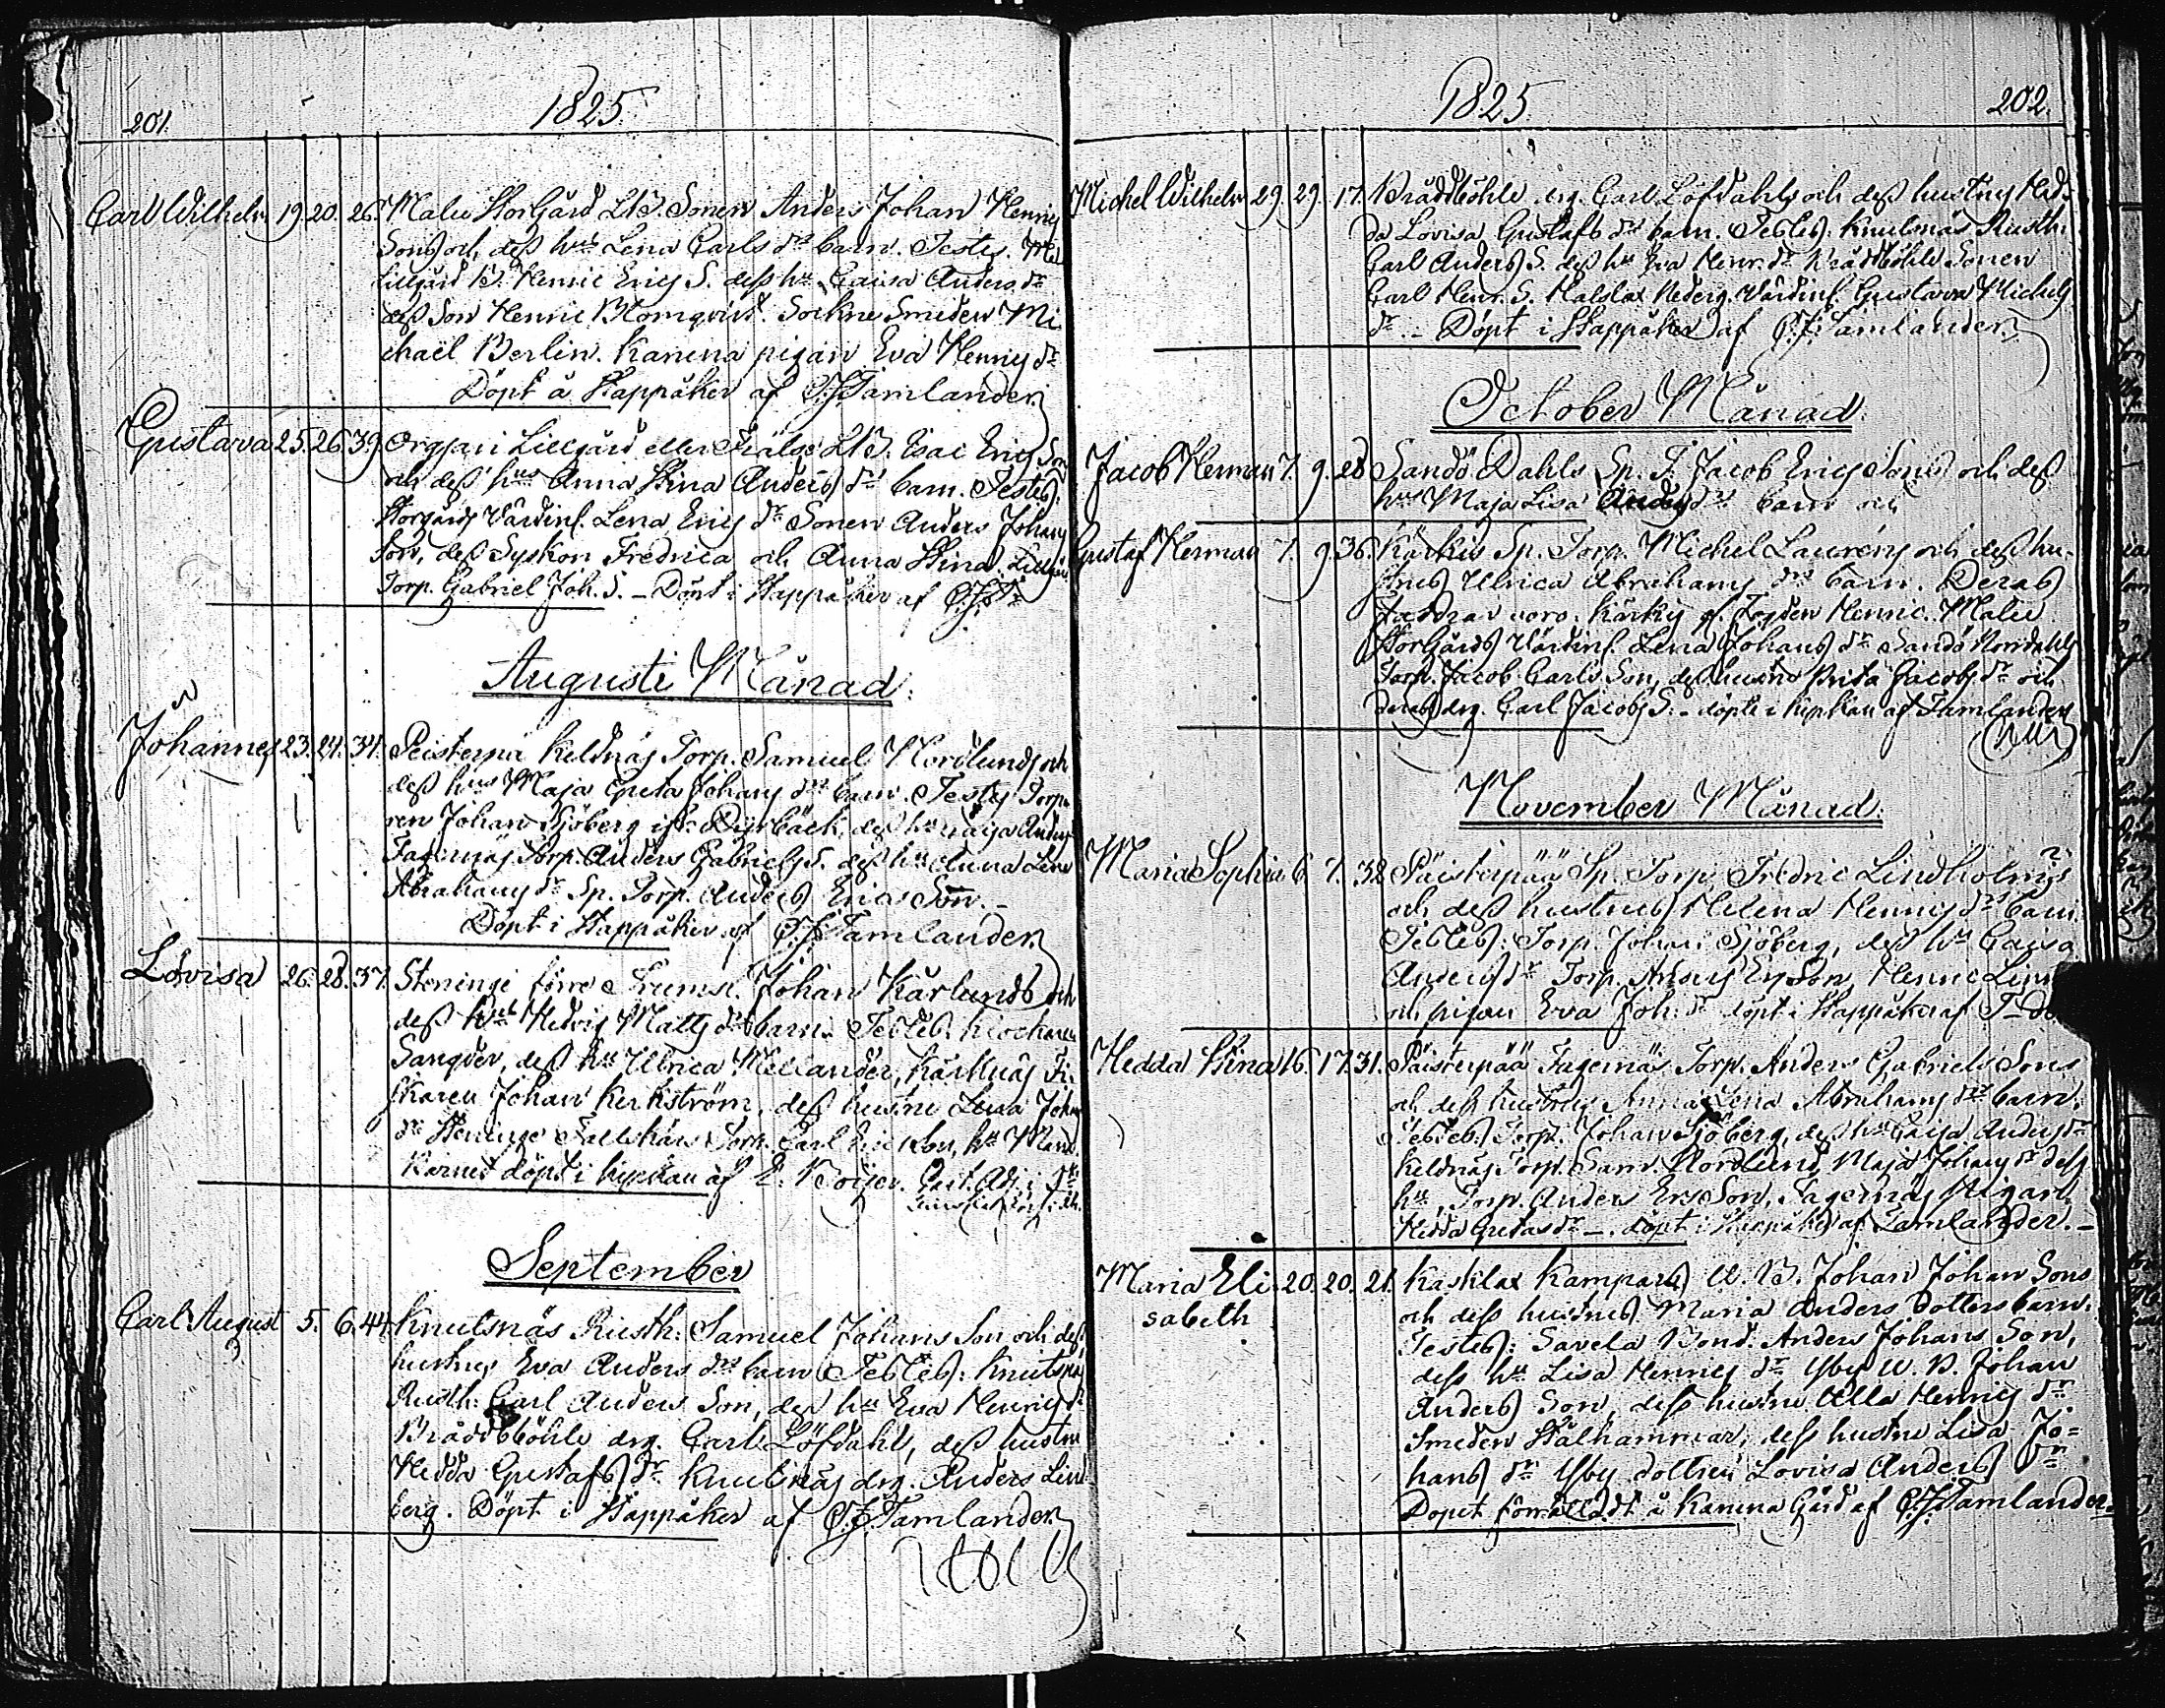 201.
1825.
Carl Wilhelm 19. 20. 26. Malu Storgård LB. Sonen Anders Johan Henrics
Sons och dess hus Lena Carls drs barn. Testes. Mal
Lillgård B. Henric Erics S. dess hu Caisa Anders dr
dess Son Henric Blomqvist. Sockne Smeden Mi
chaël Berlin. Kanena pigan Eva Henrics dr
Döpt å Stappåker af P.J. Tamlander
Gustava 25. 26. 39. Orgjan Lillgård eller LB. Esai Erics Sons
och dess hus Anna Stina Anders drs barn. Testes.
Storgårds Värdinf. Lena Erics dr Sonen Anders Johans
Son, dess Syskon Fredrica och Anna Stina. Lillgårds
Torp. Gabriel Joh. S. – Döpt i Stappåker af
Augusti Månad.
Johannes 23. 24. 34. Peisterpä Keldnäs Torp. Samuel Nordlunds och
dess hus Maja Greta Johans drs barn. Testes Torpa
ren Johan Sjöberg dess hu Caisa Anders
Fagernäs Torp. Anders Gabriels S. dess hu Anna Lena
Abrahams dr Sp. Torp. Anders Erics Son. –
Döpt i Stappåker af P.J. Tamlander
Lovisa 26. 28. 37. Steninge förre Trumsl. Johan Kärlunds och
dess hus Hedvig Matts drs barn. Testes. Klockaren
Sanqver, dess hu Ulrica Melander, Kärknäs Fi
skaren Johan Kerkström, dess hustru Lena Johans
dr Steninge Torp. Carl
Barnet döpt i kyrkan af E.
September
Carl August 5. 6. 44. Knutsnäs Rusth: Samuel Johans Son och dess
hustrus Eva Anders drs barn Testes: Knutsnäs
Rusth: Carl Anders Son, dess hu Eva Henrics dr
Bråddböhle drg. Carl Löfdahl, dess hustru
Hedda Gustafs dr Knutsnäs drg. Anders Lind
berg. Döpt i Stappåker af P.J. Tamlander
1825.
202.
Michel Wilhelm 29. 29. 17. Bråddböhle drg. Carl Löfdahls och dess hustrus Hed-
da Lovisa Gustafs drs barn. Testes. Knutsnäs Rusth.
Carl Anders S. dess hu Eva Henr. dr Bråddböhle Sonen
Carl Henr. S. Malslax Nederg. Värdinf. Gustava Michels
dr – Döpt i Stappåker af P.J. Tamlander
October Månad.
Jacob Herman 7. 9. 28 Sandö Dahls Sp. T. Jacob Erics Sons och dess
hus Maja Lisa Anders drs barn och
Gustaf Herman 7. 9. 36. Kärkis Sp. Torp. Michel Laurens och dess hu-
strus Ulrica Abrahams drs barn. Deras
Faddrar voro. Kärkis Henric. Malu
Storgårds Värdinf. Lena Johans dr Sandö Norrdahls
Torp. Jacob Carls Son, dess hustru Brita Jacobs dr och
deras drg. Carl Jacobs S. – döpte i kyrkan af Tamlander
November Månad.
Maria Sophia 6. 7. 38 Päisterpää Sp. Torp. Fredric Lindholms
och dess hustrus Helena Henrics drs barn.
Testes: Torp. Johan Sjöberg, dess hu Caisa
Anders dr Torp. Anders Ers Son, Henric
och pigan Eva Joh: dr döpt i Stappåker af
Hedda Stina 16. 17. 31. Päisterpää Fagernäs Torp. Anders Gabriels Sons
och dess hustrus Anna Lena Abrahams drs barn.
Testes: Torp. Johan Sjöberg, dess hu Caisa Anders dr
Keldnäs Torp. Sam. Nordlund Maja Johans dr dess
hu, Torp. Anders Ers Son, Fagernäs Pigan
Hedda Gretas dr –. döpt i Stappåker af Tamlander. –
Maria Eli 20. 20. 21. Kasklax Kampars U. B. Johan Johan Sons
sabeth och dess hustrus Maria Anders Dotters barn.
Testes: Savela Bond. Anders Johans Son,
dess hu Lisa Henrics dr Yby U. B. Johan
Anders Son, dess hustru Ulla Henrics dr
Smeden Stålhammar, dess hustru Lisa Jo=
hans dr Yby dottren Lovisa Anders dr
Dopet förrättadt å Kanena Gård af P.J. Tamlander